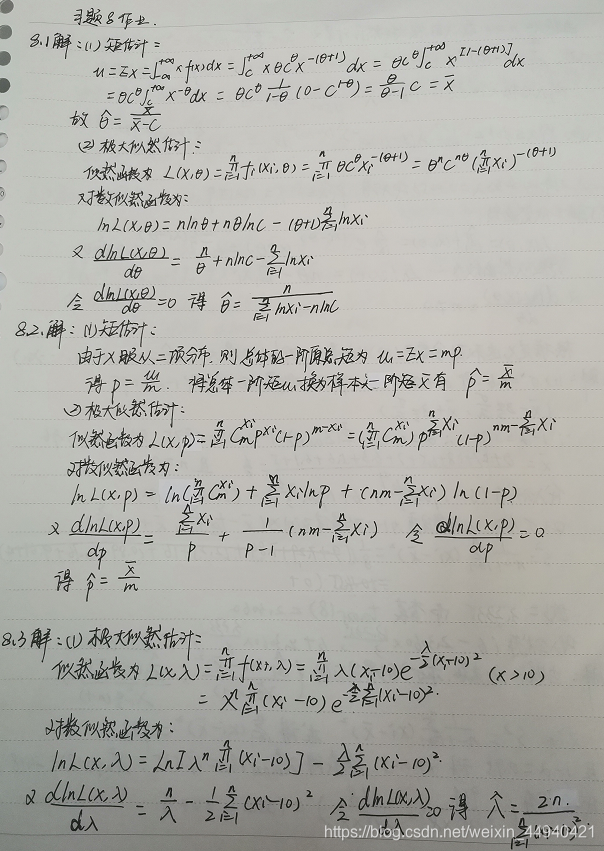 习题8作业.
8.1解:(1)矩估计:
u=Ex=∫_{-∞}^{+∞} x f(x)dx = ∫_c^{+∞} xθc^θ x^{-(θ+1)} dx = θc^θ∫_c^{+∞} x^{[1-(θ+1)]} dx
=θc^θ∫_c^{+∞} x^{-θ}dx = θc^θ 1/(1-θ) (0-c^{1-θ}) = θ/(θ-1) c = x̄
故 θ̂ = x̄/(x̄-c)
(2)极大似然估计:
似然函数为 L(x,θ)=∏_{i=1}^n f(xi,θ)=∏_{i=1}^n θc^θ xi^{-(θ+1)} = θ^n c^{nθ} (∏_{i=1}^n xi)^{-(θ+1)}
对数似然函数为:
lnL(x,θ)=nlnθ+nθlnc-(θ+1)∑_{i=1}^n lnxi
又 dlnL(x,θ)/dθ = n/θ + nlnc - ∑_{i=1}^n lnxi
令 dlnL(x,θ)/dθ =0 得 θ̂ = n/(∑_{i=1}^n lnxi-nlnc)
8.2.解:(1)矩估计:
由于X服从二项分布,则总体的一阶原点矩为 u₁=Ex=mp.
得 p=u₁/m. 将总体一阶矩u₁换为样本一阶矩x̄有 p̂=x̄/m
(2)极大似然估计:
似然函数为L(x,p)=∏_{i=1}^n C_m^{xi} p^{xi}(1-p)^{m-xi}=(∏_{i=1}^n C_m^{xi}) p^{∑_{i=1}^n xi} (1-p)^{nm-∑_{i=1}^n xi}
对数似然函数为:
lnL(x,p)=ln(∏_{i=1}^n C_m^{xi})+∑_{i=1}^n xi lnp+(nm-∑_{i=1}^n xi) ln(1-p)
又 dlnL(x,p)/dp = ∑_{i=1}^n xi/p + 1/(p-1) (nm-∑_{i=1}^n xi) 令 dlnL(x,p)/dp =0
得 p̂=x̄/m
8.3解:(1)极大似然估计:
似然函数为 L(x,λ)=∏_{i=1}^n f(xi,λ)=∏_{i=1}^n λ(xi-10)e^{-λ/2(xi-10)²} (x>10)
=λ^n ∏_{i=1}^n (xi-10)e^{-λ/2∑_{i=1}^n(xi-10)²}
对数似然函数为:
lnL(x,λ)=Ln[λ^n ∏_{i=1}^n (xi-10)]-λ/2∑_{i=1}^n (xi-10)².
又 dlnL(x,λ)/dλ = n/λ - 1/2∑_{i=1}^n (xi-10)² 令 dlnL(x,λ)/dλ =0 得 λ̂= 2n/∑_{i=1}^n(xi-10)²
https://blog.csdn.net/weixin_44940421